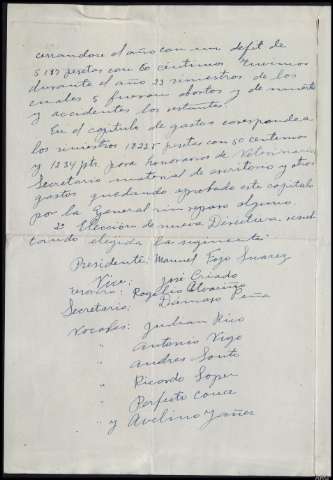 cerrandose el año con un defit de
5187 pesetas con 60 centimos Tuvimos
durante el año 23 siniestros de los
cuales 5 fueron abortos y de muerte
y accidentes los restantes.
En el capitulo de gastos corresponde a
los siniestros 18225 pesetas con 50 centimos
y 1234 pts. para honorarios de Veterinario
Secretario material de escritorio y otros
gastos quedando aprobado este capitulo
por la General sin reparo alguno.
2º Elección de nueva Directiva resul
tando elegida la siguiente
Presidente: Manuel Fojo Suarez
Vice: José Criado
Tesorero: Rogelio Alvarez
Secretario: Damaso Peña
Vocales: Julian Rico
" Antonio Vigo
" Andres Souto
" Ricardo Lopez
" Perfecto Couce
" y Avelino Yañez